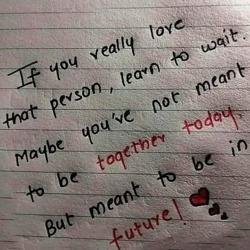 If you really love
that person, learn to wait.
Maybe you've not meant
to be together today.
But meant to be in
future!